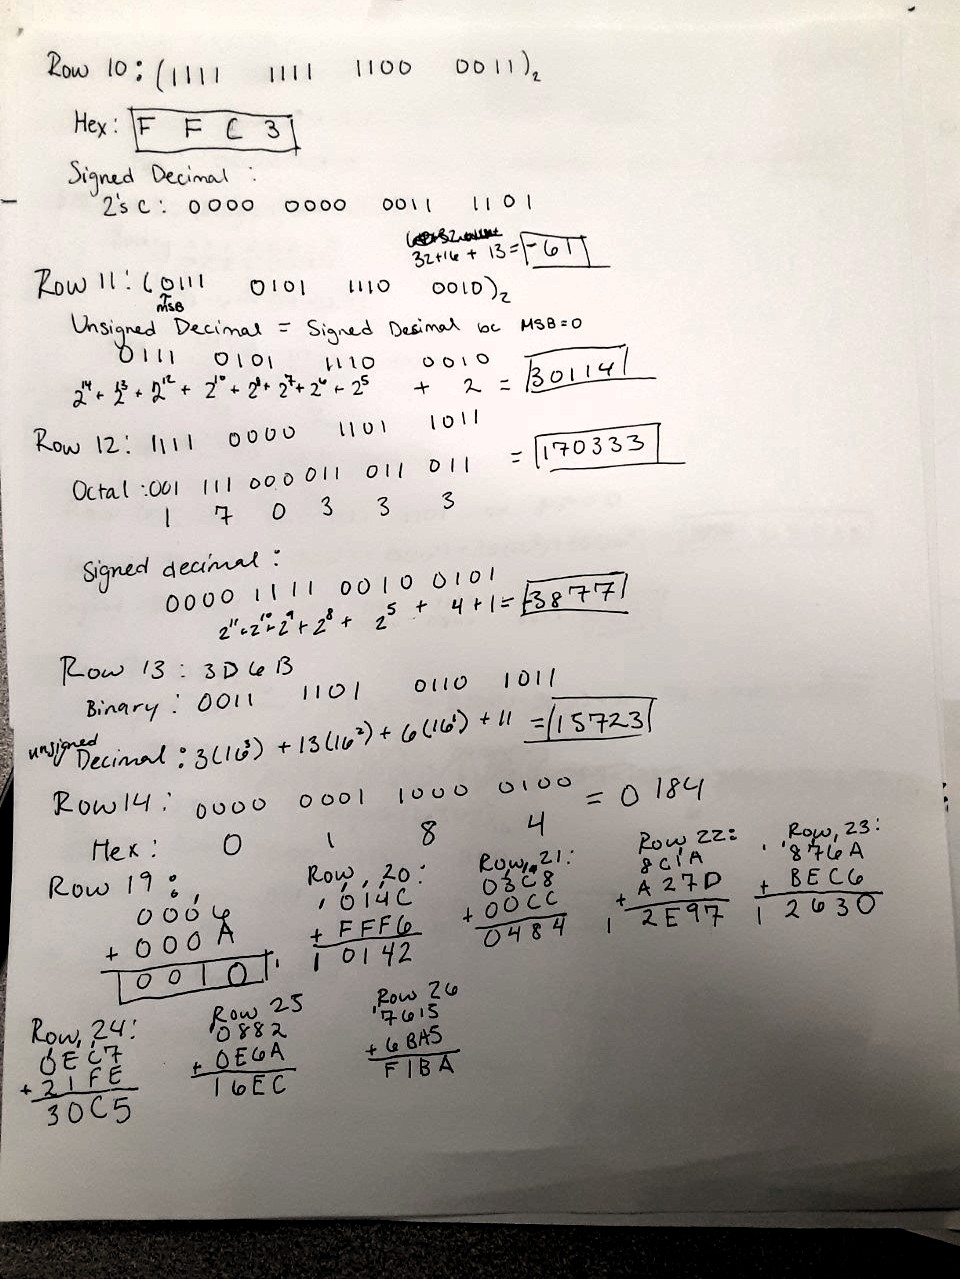 Row 10: (1111 1111 1100 0011)₂
Hex: F F C 3
Signed Decimal:
2's C: 0000 0000 0011 1101
32+16 + 13 = -61
Row 11: (0111 0101 1110 0010)₂
MSB
Unsigned Decimal = Signed Decimal bc MSB=0
0111 0101 1110 0010
2¹⁴ + 2¹³ + 2¹² + 2¹⁰ + 2⁸ + 2⁷ + 2⁶ + 2⁵ + 2 = 30114
Row 12: 1111 0000 1101 1011
Octal: 001 111 000 011 011 011 = 170333
1 7 0 3 3 3
Signed decimal:
0000 1111 0010 0101
2¹¹ + 2¹⁰ + 2⁹ + 2⁸ + 2⁵ + 4 + 1 = -3877
Row 13: 3D6B
Binary: 0011 1101 0110 1011
unsigned
Decimal: 3(16³) + 13(16²) + 6(16¹) + 11 = 15723
Row 14: 0000 0001 1000 0100 = 0184
Hex: 0 1 8 4
Row 19:
0006
+ 000A
0010
Row 20:
014C
+ FFF6
1 0142
Row 21:
03C8
+ 00CC
0484
Row 22:
8C1A
+ A27D
1 2E97
Row 23:
876A
+ BEC6
1 2630
Row 24:
0EC7
+ 21FE
30C5
Row 25
0882
+ 0E6A
16EC
Row 26
7615
+ 6BA5
F1BA